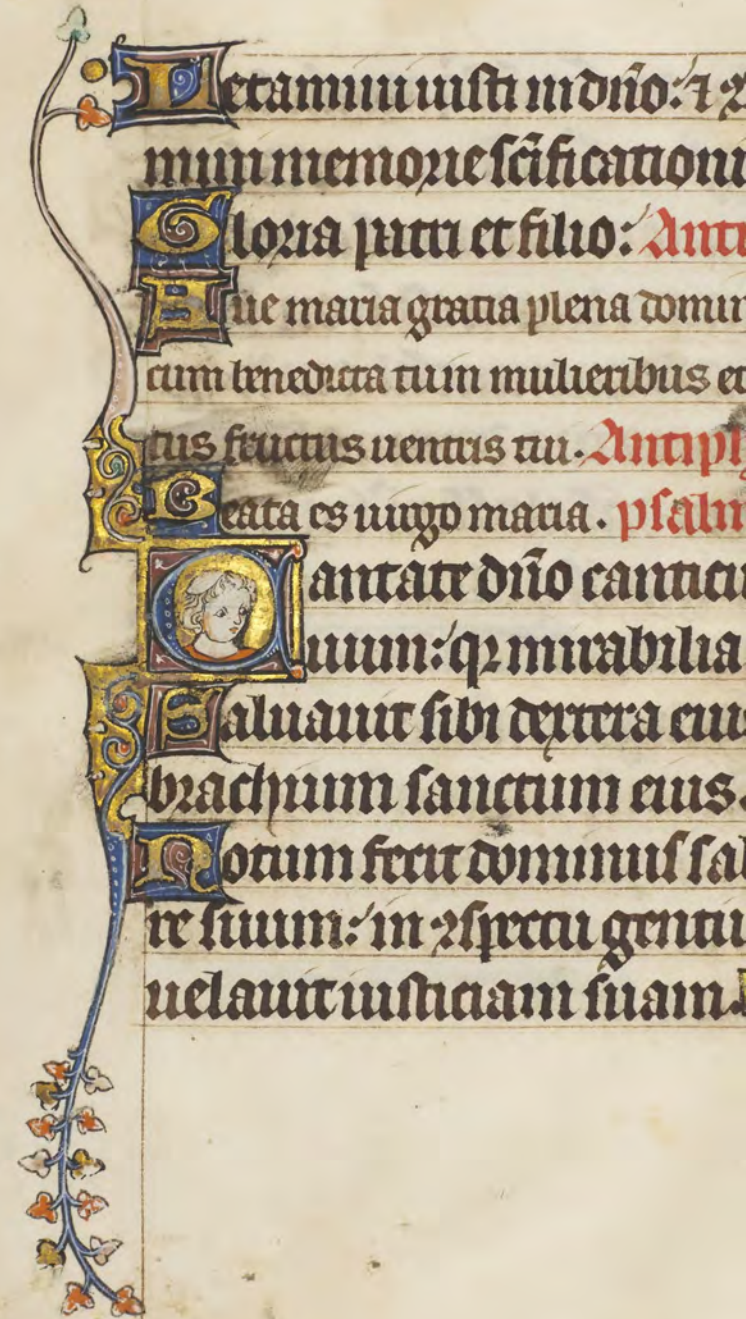 Letamini iusti in dn̄o: ⁊ ꝯ
mini memorie sc̄ificationi
Gloria patri et filio: Anti
Aue maria gratia plena domin
cum benedicta tu in mulieribus et
tus fructus uentris tui. Antiph
Beata es uirgo maria. psalm
Cantate dn̄o canticu
nuum: qꝛ mirabilia
Saluauit sibi dextera eius
brachium sanctum eius.
Notum fecit dominus sal
re suum: in ꝯspectu gentiu
uelauit iusticiam suam.